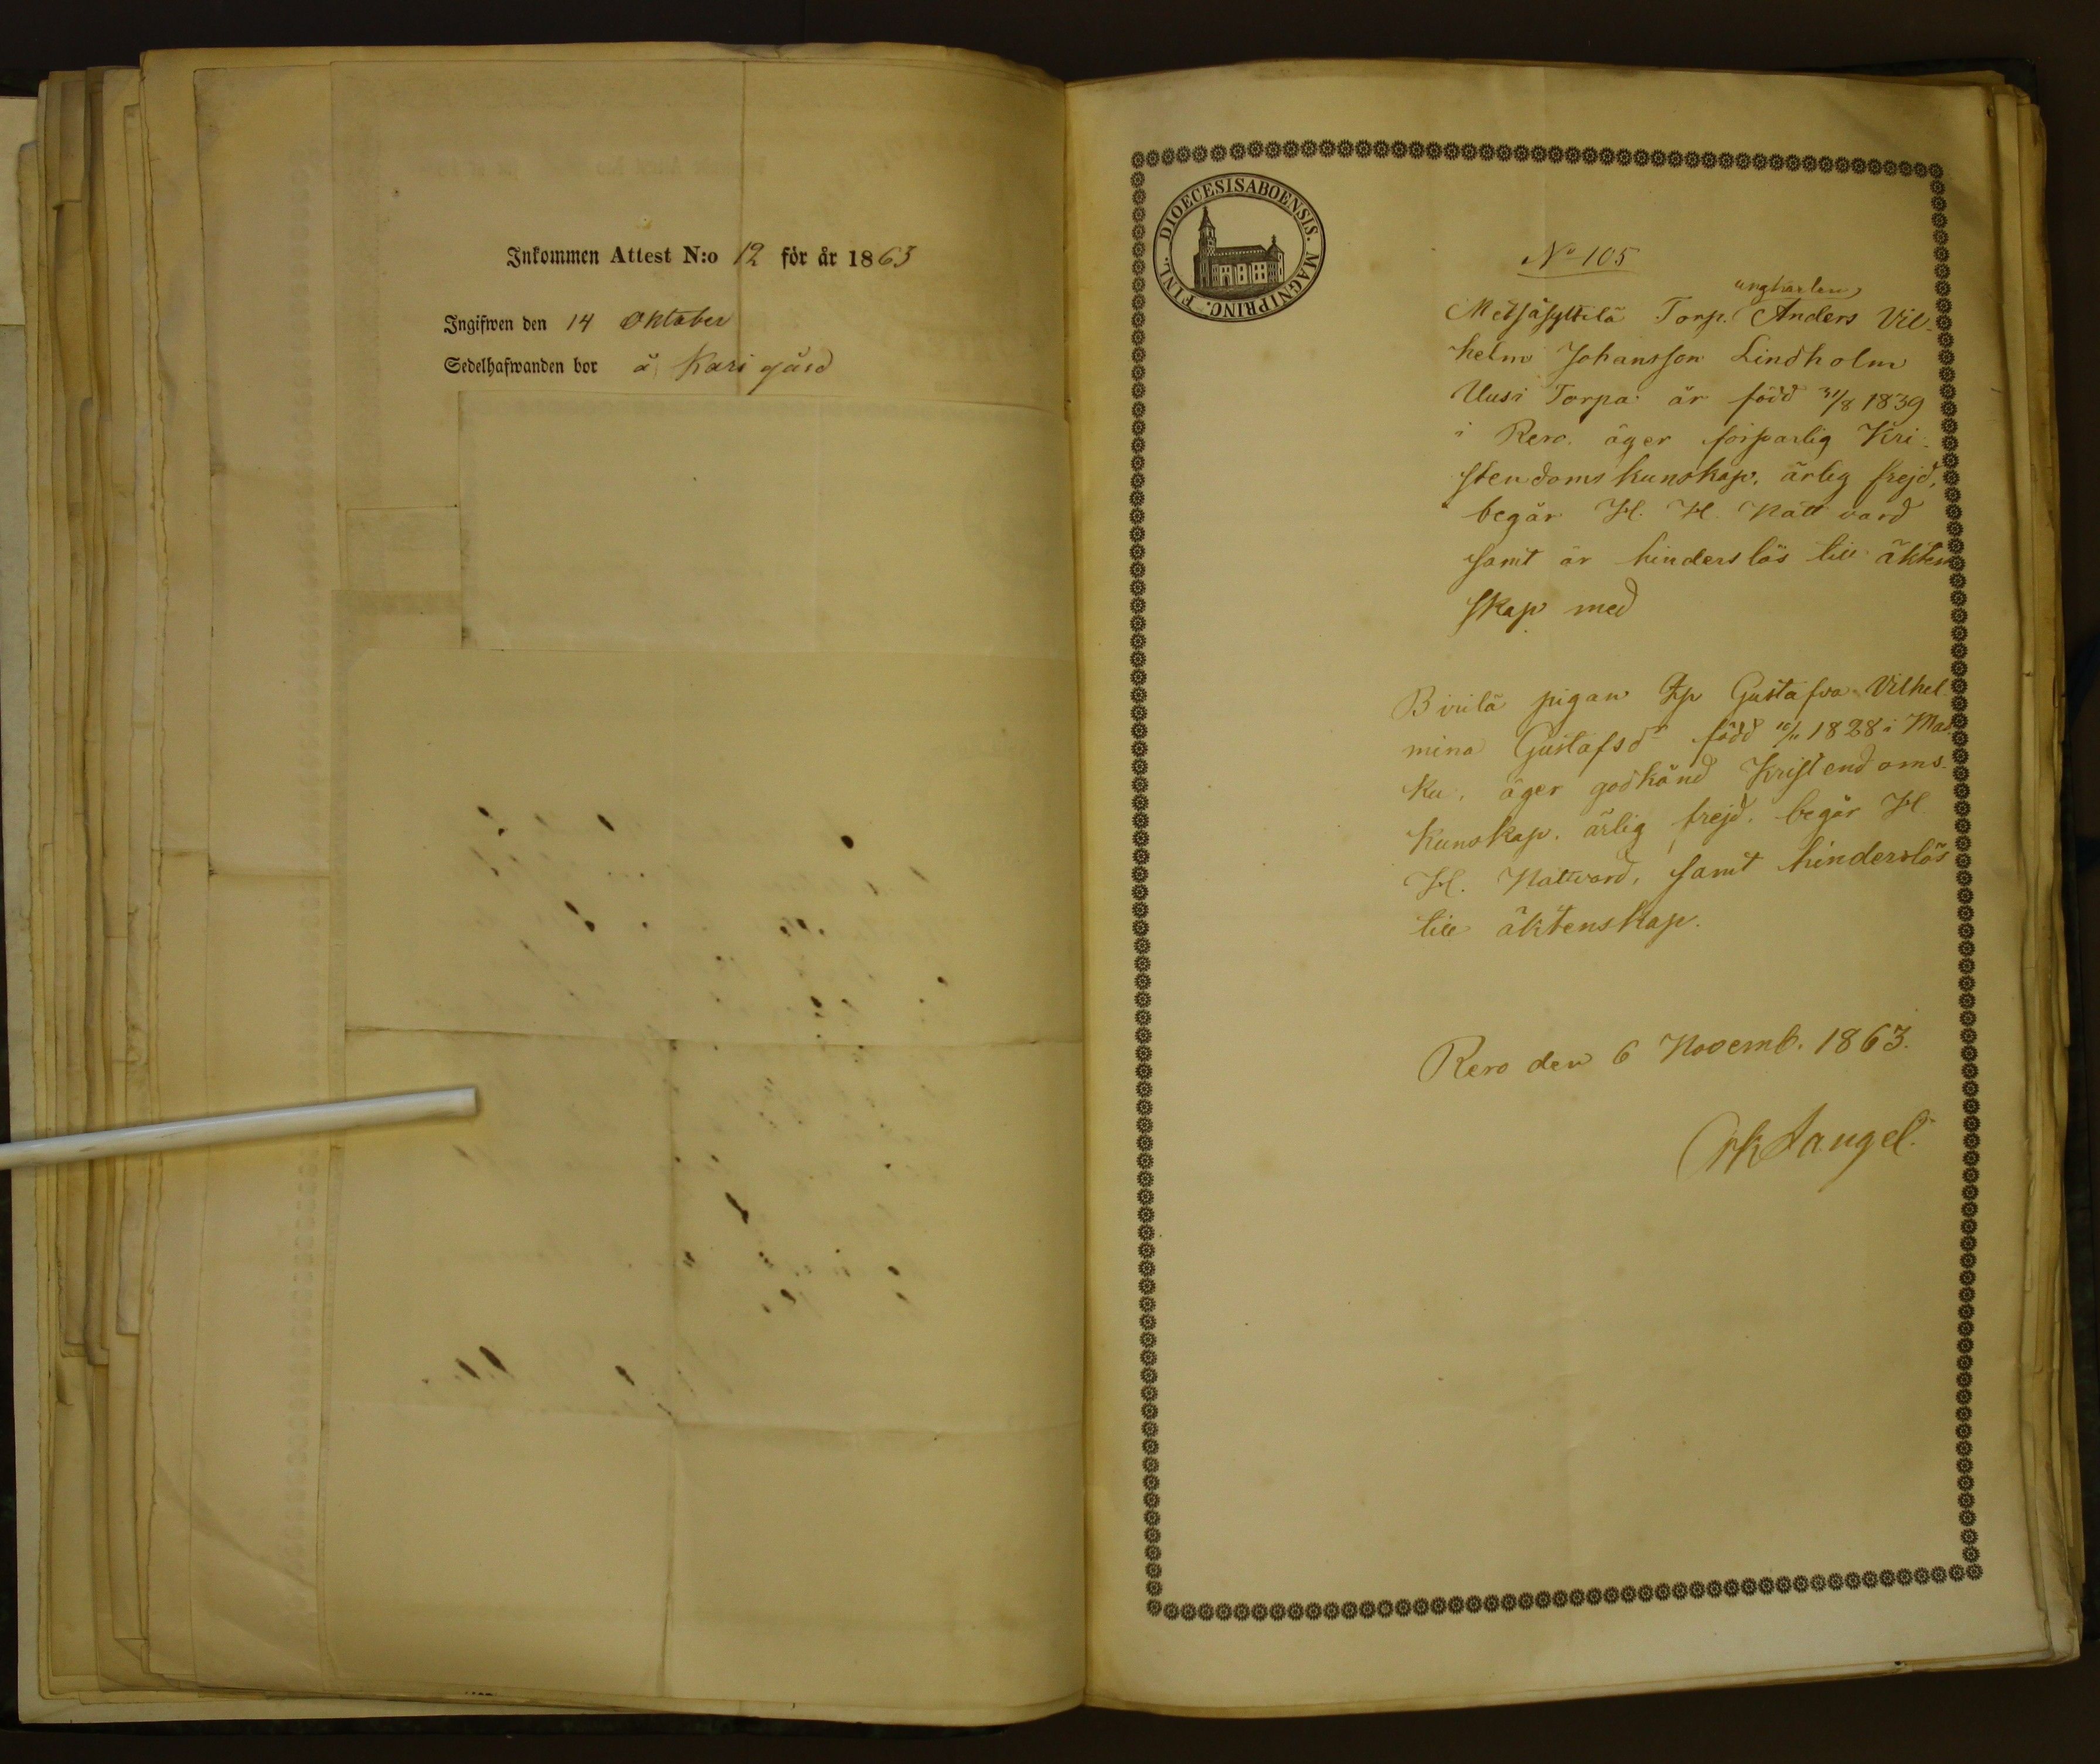 Inkommen Attest N:o 12 för år 1863
Ingifwen den 14 Oktober
Sedelhafwanden bor å Kari gård
DIOECESISABOENSIS. MAGNIPRINC. FINL.
No 105
ungkarlen
Metsäkyltilä Torp. Anders Vil-
helm Johansson Lindholm
Uusi Torpa är född 31/8 1839
i Rero. äger försvarlig Kri-
stendomskunskap, ärlig frejd,
begår H. H. Nattvard
samt är hinderslös till äkten
skap med
pigan Gustafva Vilhel
mina Gustafsdr född 10/11 1828 i Mas
ku, äger godkänd Kristendoms-
kunskap, ärlig frejd, begår H.
H. Nattvard, samt hinderslös
till äktenskap.
Rero den 6 Novemb. 1863.